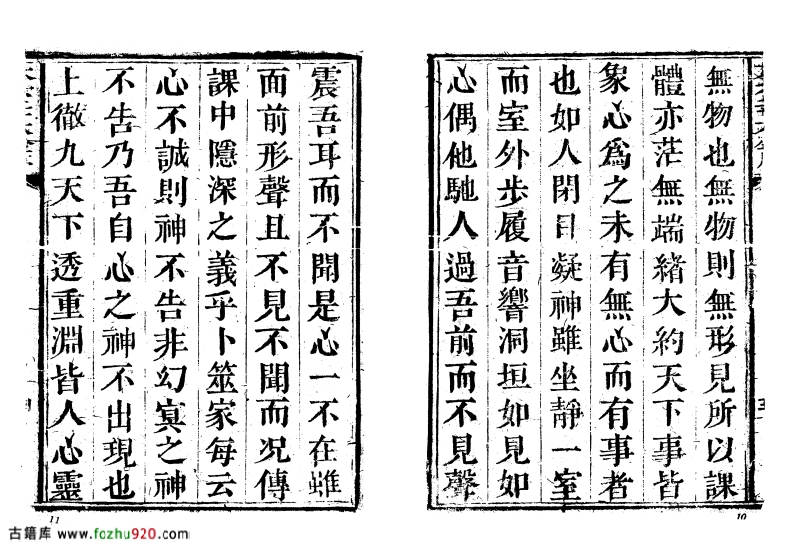 無物也無物則無形見所以課
體亦茫無端緒大約天下事皆
象心為之未有無心而有事者
也如人閉目凝神雖坐靜一室
而室外步履音響洞垣如見如
心偶他馳人過吾前而不見聲
10
震吾耳而不聞是心一不在雖
面前形聲且不見不聞而况傳
課中隱深之義乎卜筮家每云
心不誠則神不告非幻寘之神
不告乃吾自心之神不出現也
上徹九天下透重淵皆人心靈
11
古籍库 www.fozhu920.com